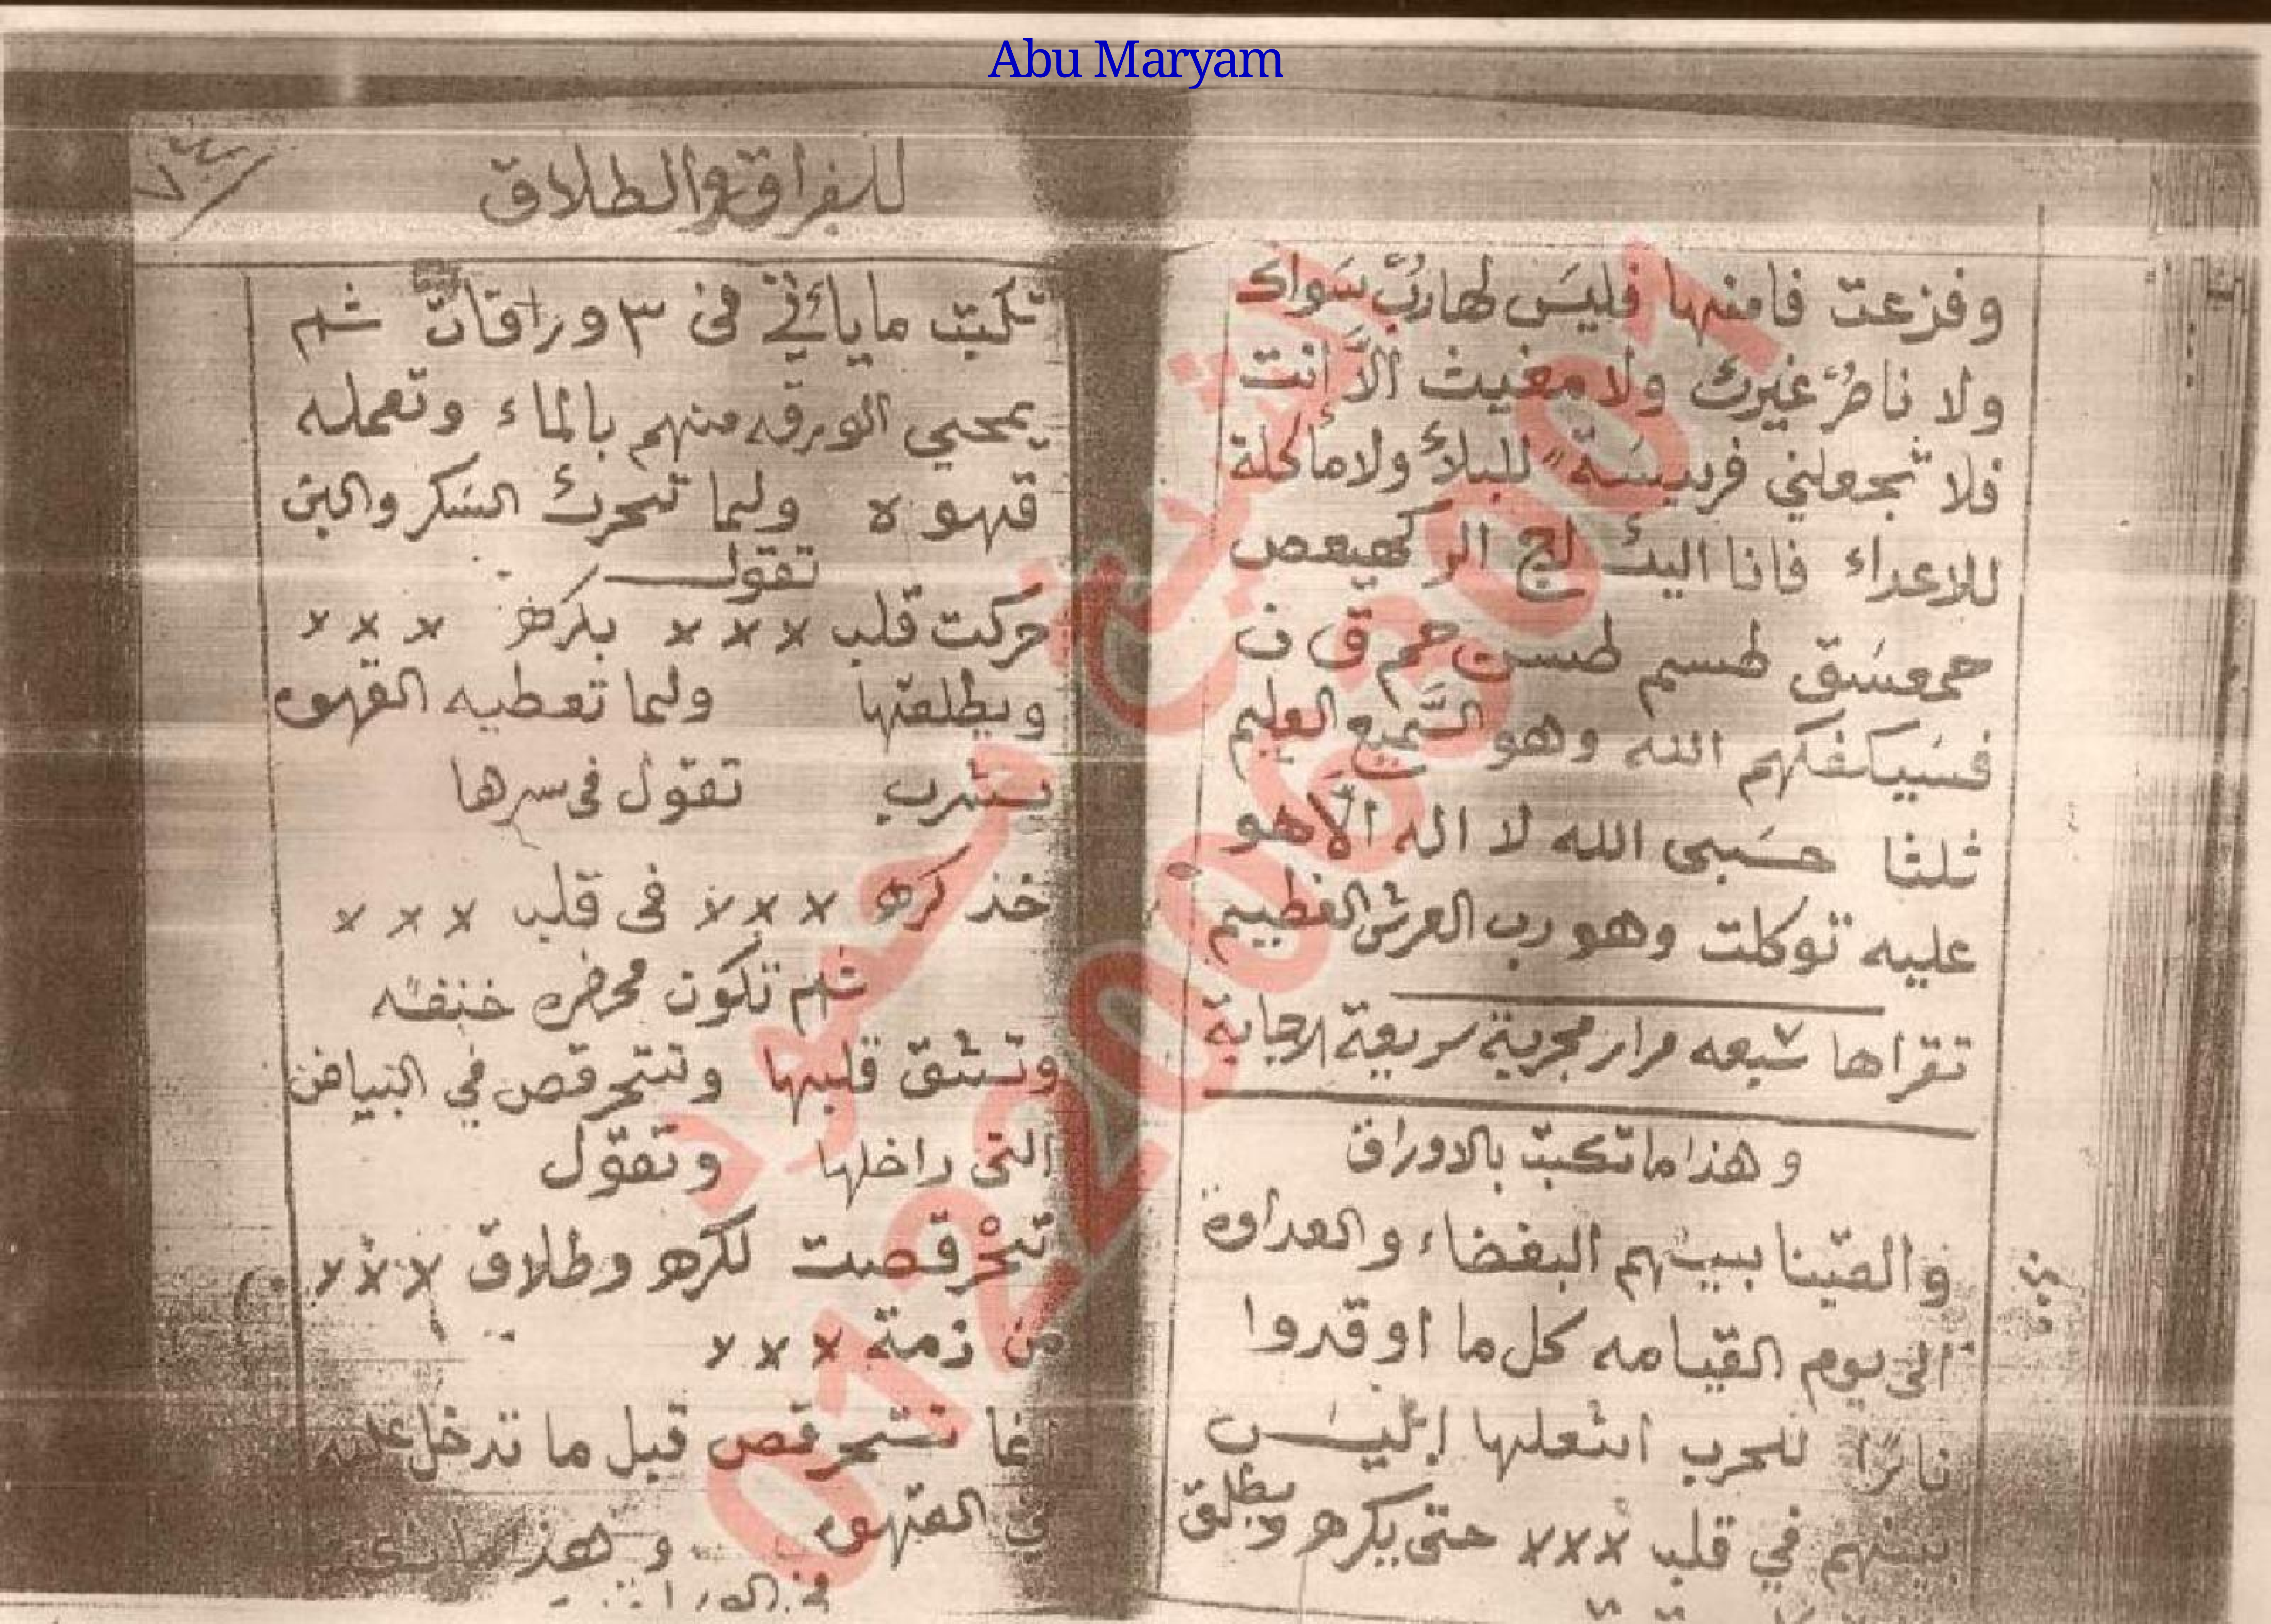 Abu Maryam
وفزعت فامنها فليس لهاربٌ سواك
ولا ناصرٌ غيرك ولا مغيث الاّ أنت
فلا تجعلني فريسة للبلاء ولا مأكلة
للاعداء فانا اليك الر كهيعص
حمعسق طسم طس حم ق ن
فسيكفكهم الله وهو السَّميع العليم
ثلثا حسبى الله لا اله الاّهو
عليه توكلت وهو رب العرش العظيم
تقراها سبعه مرار مجربة سريعة الاجابة
وهذا ما تكبت بالاوراق
والقينا بينهم البغضاء والعداوة
الى يوم القيامه كل ما اوقدوا
نارًا للحرب اشعلها ابليس
بينهم في قلب ××× حتى يكره ويطلق
للفراق والطلاق
تكبت ماياتي في ٣ وراقات ثم
يمحي الورقه منهم بالماء وتعمله
قهوه ولما تحرك السكر والبن
تقول
حركت قلب ××× بكره ×××
ويطلقها ولما تعطيه القهوه
يشرب تقول في سرها
خذ كره ××× في قلب ×××
ثم تكون محضره خنفسه
وتشق قلبها وتتحرقص في البياض
التى داخلها وتقول
تحْرقصت لكره وطلاق ×××
من ذمة ×××
انما تتحرقص قبل ما تدخل عليه
في القهوه وهذا ما
01220083001